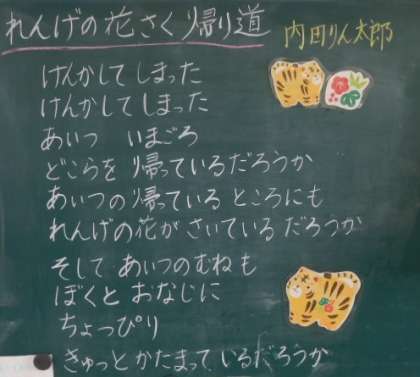 れんげの花さく帰り道
内田りん太郎
けんかして しまった
けんかして しまった
あいつ いまごろ
どこらを 帰っているだろうか
あいつの帰っている ところにも
れんげの花が さいている だろうか
そして あいつのむねも
ぼくと おなじに
ちょっぴり
きゅっと かたまって いるだろうか